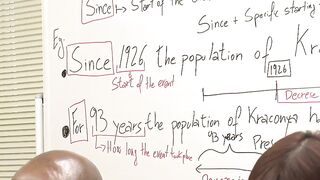 Since → Start of the
Since + Specific starting
Eg:
Since 1926, the population of
1926
Start of the event
Decrea
For 93 years, the population of Kraconya h
93 years Pres
How long the event took place